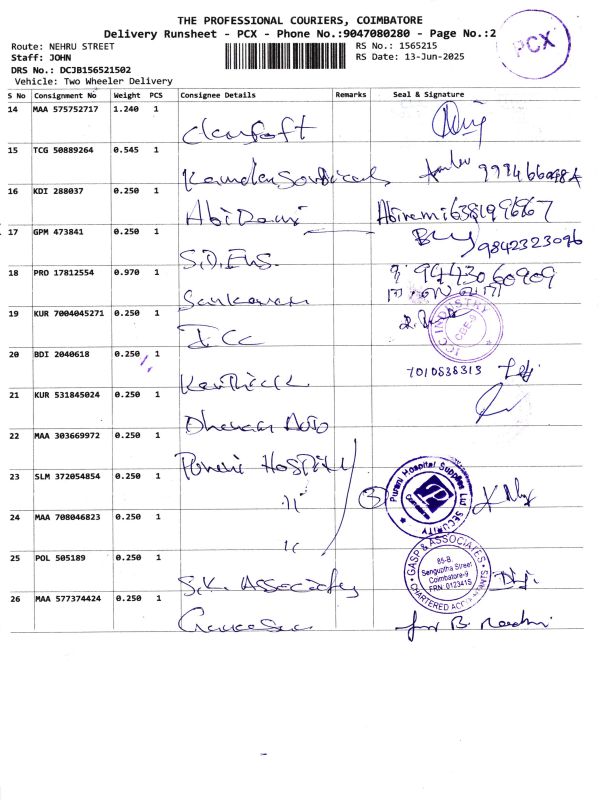 THE PROFESSIONAL COURIERS, COIMBATORE
Delivery Runsheet - PCX - Phone No.:9047080280 - Page No.:2
PCX
Route: NEHRU STREET
Staff: JOHN
DRS No.: DCJB156521502
Vehicle: Two Wheeler Delivery
RS No.: 1565215
RS Date: 13-Jun-2025
S No Consignment No Weight PCS Consignee Details Remarks Seal & Signature
14 MAA 575752717 1.240 1
15 TCG 50889264 0.545 1
16 KDI 288037 0.250 1 Abirami 6381996967
17 GPM 473841 0.250 1 S.D. Ens. 9842323096
18 PRO 17812554 0.970 1 Sankaran 9443060909
19 KUR 7004045271 0.250 1 ICC
ICC INDUSTRY CBE
20 BDI 2040618 0.250 1 Karthick 7010838313
21 KUR 531845024 0.250 1 Auto
22 MAA 303669972 0.250 1 Purani Hospital
23 SLM 372054854 0.250 1 "
Purani Hospital Supplies Ltd SECURITY Coimbatore
3
24 MAA 708046823 0.250 1 "
25 POL 505189 0.250 1 S.K. Associates
GASP & ASSOCIATES
85-B
Senguptha Street
Coimbatore-9
FRN: 012341S
CHARTERED ACCOUNTANTS
26 MAA 577374424 0.250 1